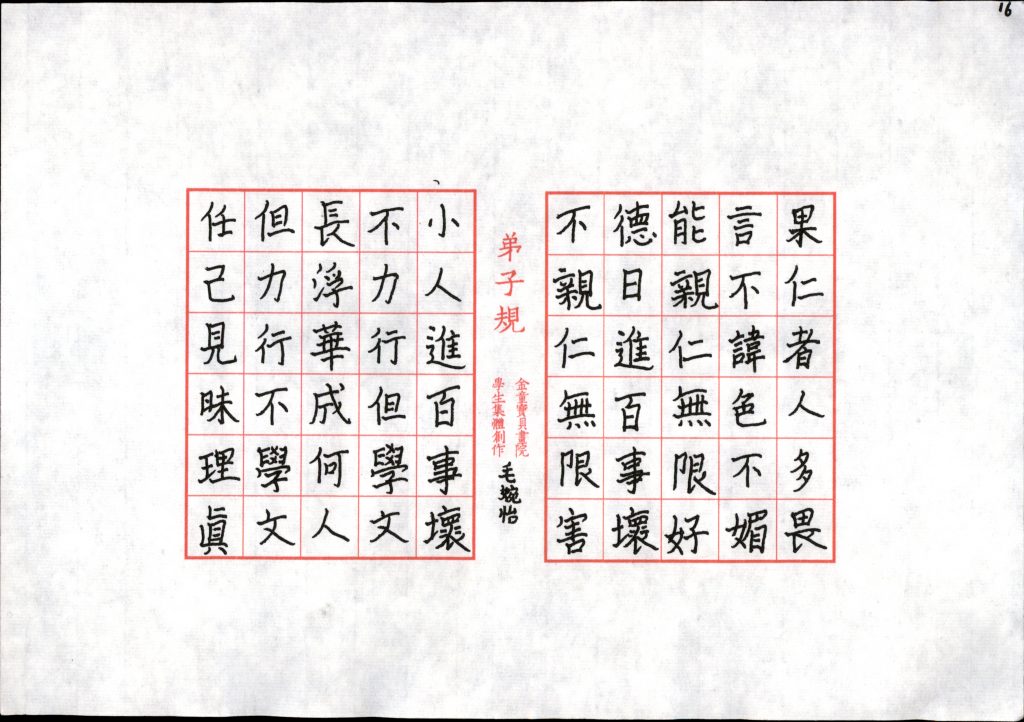 16
果仁者人多畏
言不諱色不媚
能親仁無限好
德日進百事壞
不親仁無限害
弟子規
金童寶貝畫院
學生集體創作
毛蜿怡
小人進百事壞
不力行但學文
長浮華成何人
但力行不學文
任己見昧理眞